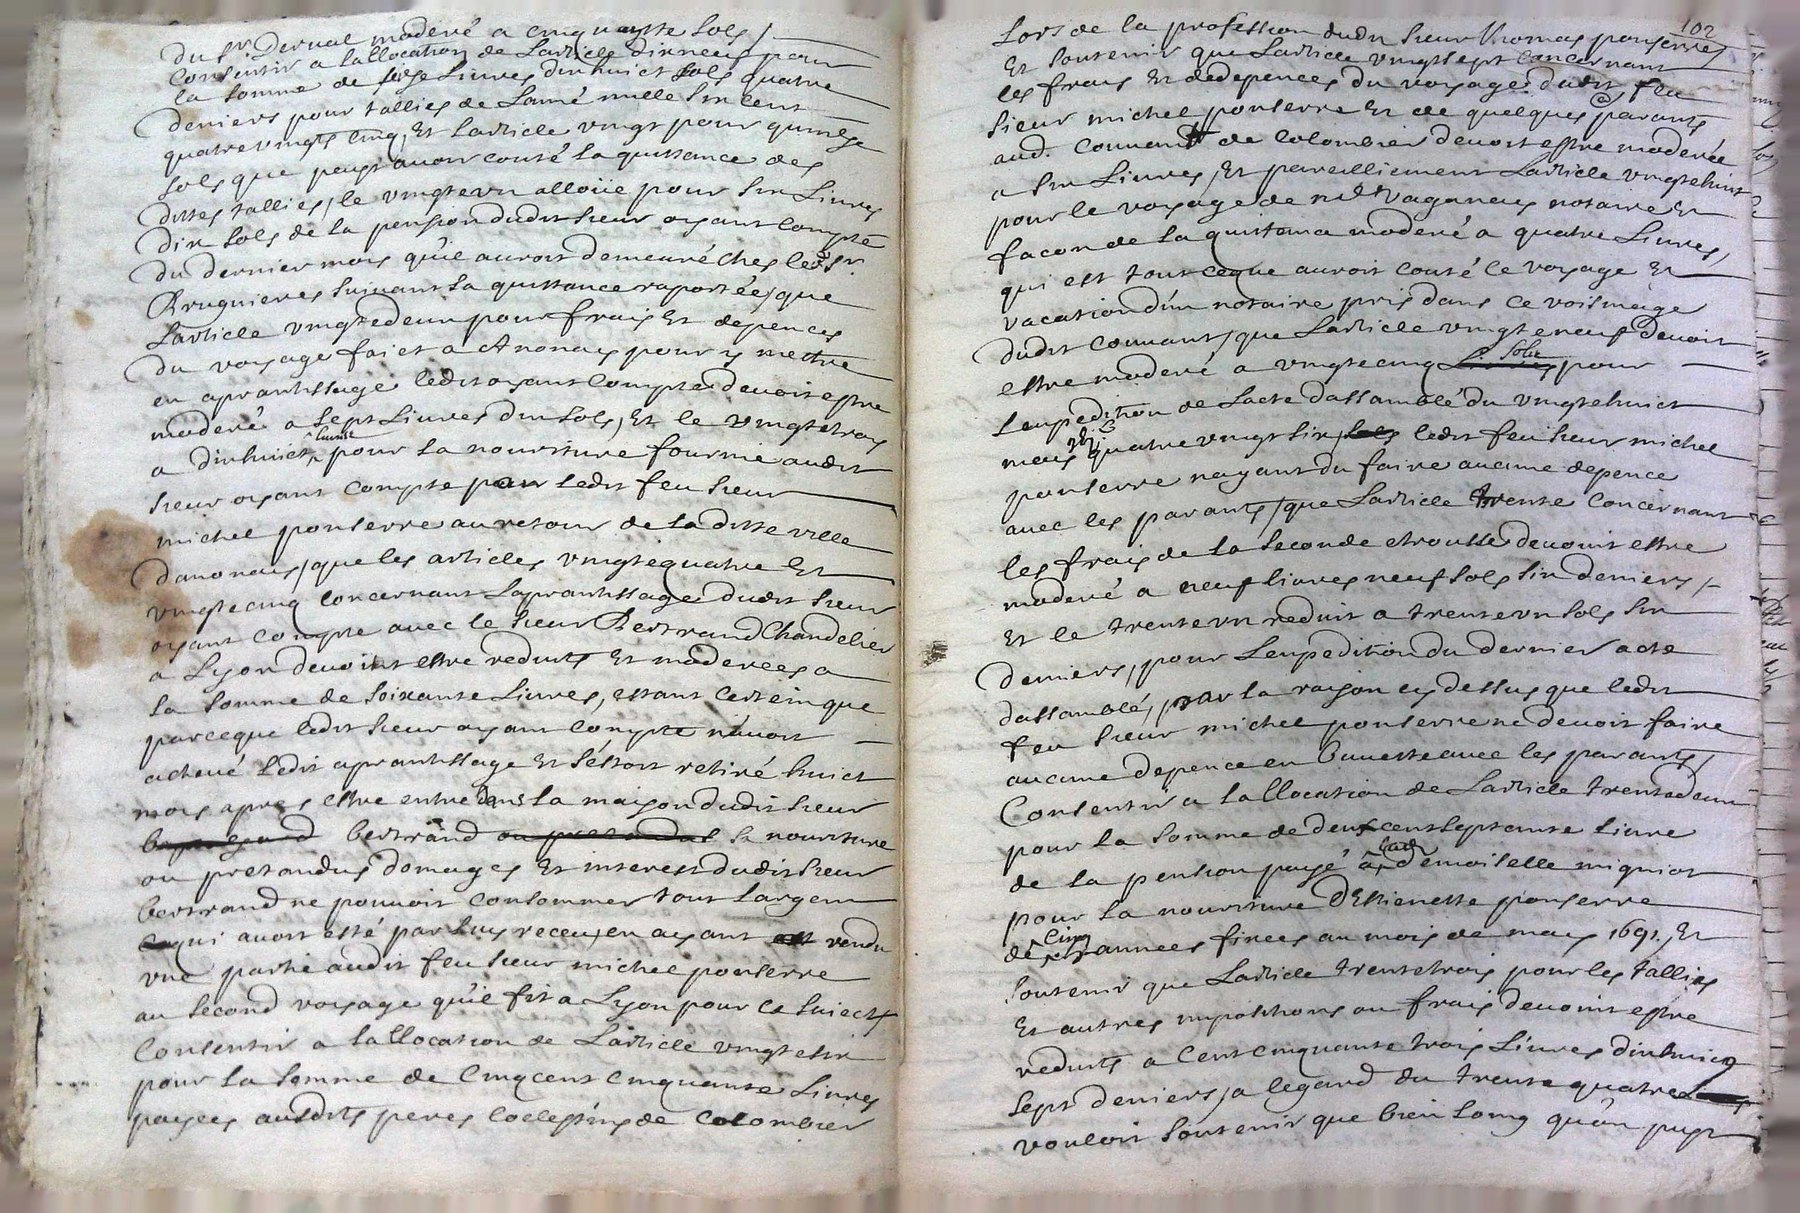 du Sr. Derval moderé a cinquante sols /
Consentir a lallocation de Larticle dixneuf pour
la somme de seze Livres dixhuict sols quatre
deniers pour tallies de Lanné mille six cent
quatrevingts cinq, Et Larticle vingt pour quinse
sols que peust avoir couté la quittance des
dittes tallies, le vingtevn alloüé pour six Livres
dix sols de la pension dudit sieur oyant compte
du dernier mois quil auroit demeuré ches ledt Sr.
Bruguieres suivant la quittance raportée, que
Larticle vingtedeux pour frais Et depences
du voyage faict a Anonay pour y mettre
en aprantissage ledit oyant Compte devoit estre
moderé a sept Livres dix sols, Et le vingtetrois
a dixhuict Livres pour la nouriture fournie audit
sieur oyant compte par ledit feu sieur
michel ponserre au retour de la ditte ville
danonay, que les articles vingtequatre Et
vingtecinq concernant Laprantissage dudit sieur
oyant compte avec le sieur Bertrand Chandelier
a Lyon devoint estre reduits Et moderees a
la somme de soixante Livres, estant certein que
parceque ledit sieur oyant compte n'avoit
achevé ledit aprantissage Et s'éstoit retiré huict
mois apres estre entre dans la maison dudit sieur
bertrand sa nouriture
ou pretandus domages Et interest dudit sieur
bertrand ne pouvoit consommer tout largent
qui avoit esté par luy receu, en ayant rendu
vne partie audit feu sieur michel ponserre
au second voyage qu'il fit a Lyon pour ce suiect,
Consentir a lallocation de Larticle vingtesix
pour la somme de Cinqcent cinquante Livres
payees ausdits peres Coelestins de Colombier
102
Lors de la profession dudit sieur Thomas ponserre,
Et soutenir que Larticle vingtsept concernant
les frais Et dedepences du voyage dudit feu
sieur michel ponserre Et de quelques parants
aud. Couvant de Colombier devoit estre moderée
a six Livres, Et pareilliement Larticle vingtehuit
pour le voyage de me Vaganay notaire Et
facon de la quittance moderé a quatre Livres,
qui est tout ceque auroit couté le voyage Et
vacation d'un notaire pris dans le voisinage
dudit couvant, que Larticle vingteneuf devoit
estre moderé a vingtecinq sols pour
Lexpedition de Lacte dassamblé du vingtehuict
mars quatrevingt six, ledit feu sieur michel
ponserre nayant du faire aucune depence
avec les parants, que Larticle trente concernant
les frais de la seconde etrousse devoint estre
moderé a neuf livres neuf sols six deniers,
Et le trentevn reduit a trentevn sols six
deniers, pour Lexpedition du dernier acte
dassamblé, par la raison cy dessus que ledit
feu sieur michel ponserre ne devoit faire
aucune depence en buvette avec les parants,
Consentir a lallocation de Larticle trentedeux
pour la somme de deux cent septante livre
de la pension payé a lad. demoiselle migniot
pour la nouriture d'Estienette ponserre
de Cinq annees finees au mois de may 1691. Et
soutenir que Larticle trentetrois pour les tallies
Et autres impositions ou frais devoint estre
reduits a Cent cinquante trois Livres dixhuict
sept deniers, a legard du trente quatre
vouloir soutenir que bien loing qu'on puyt